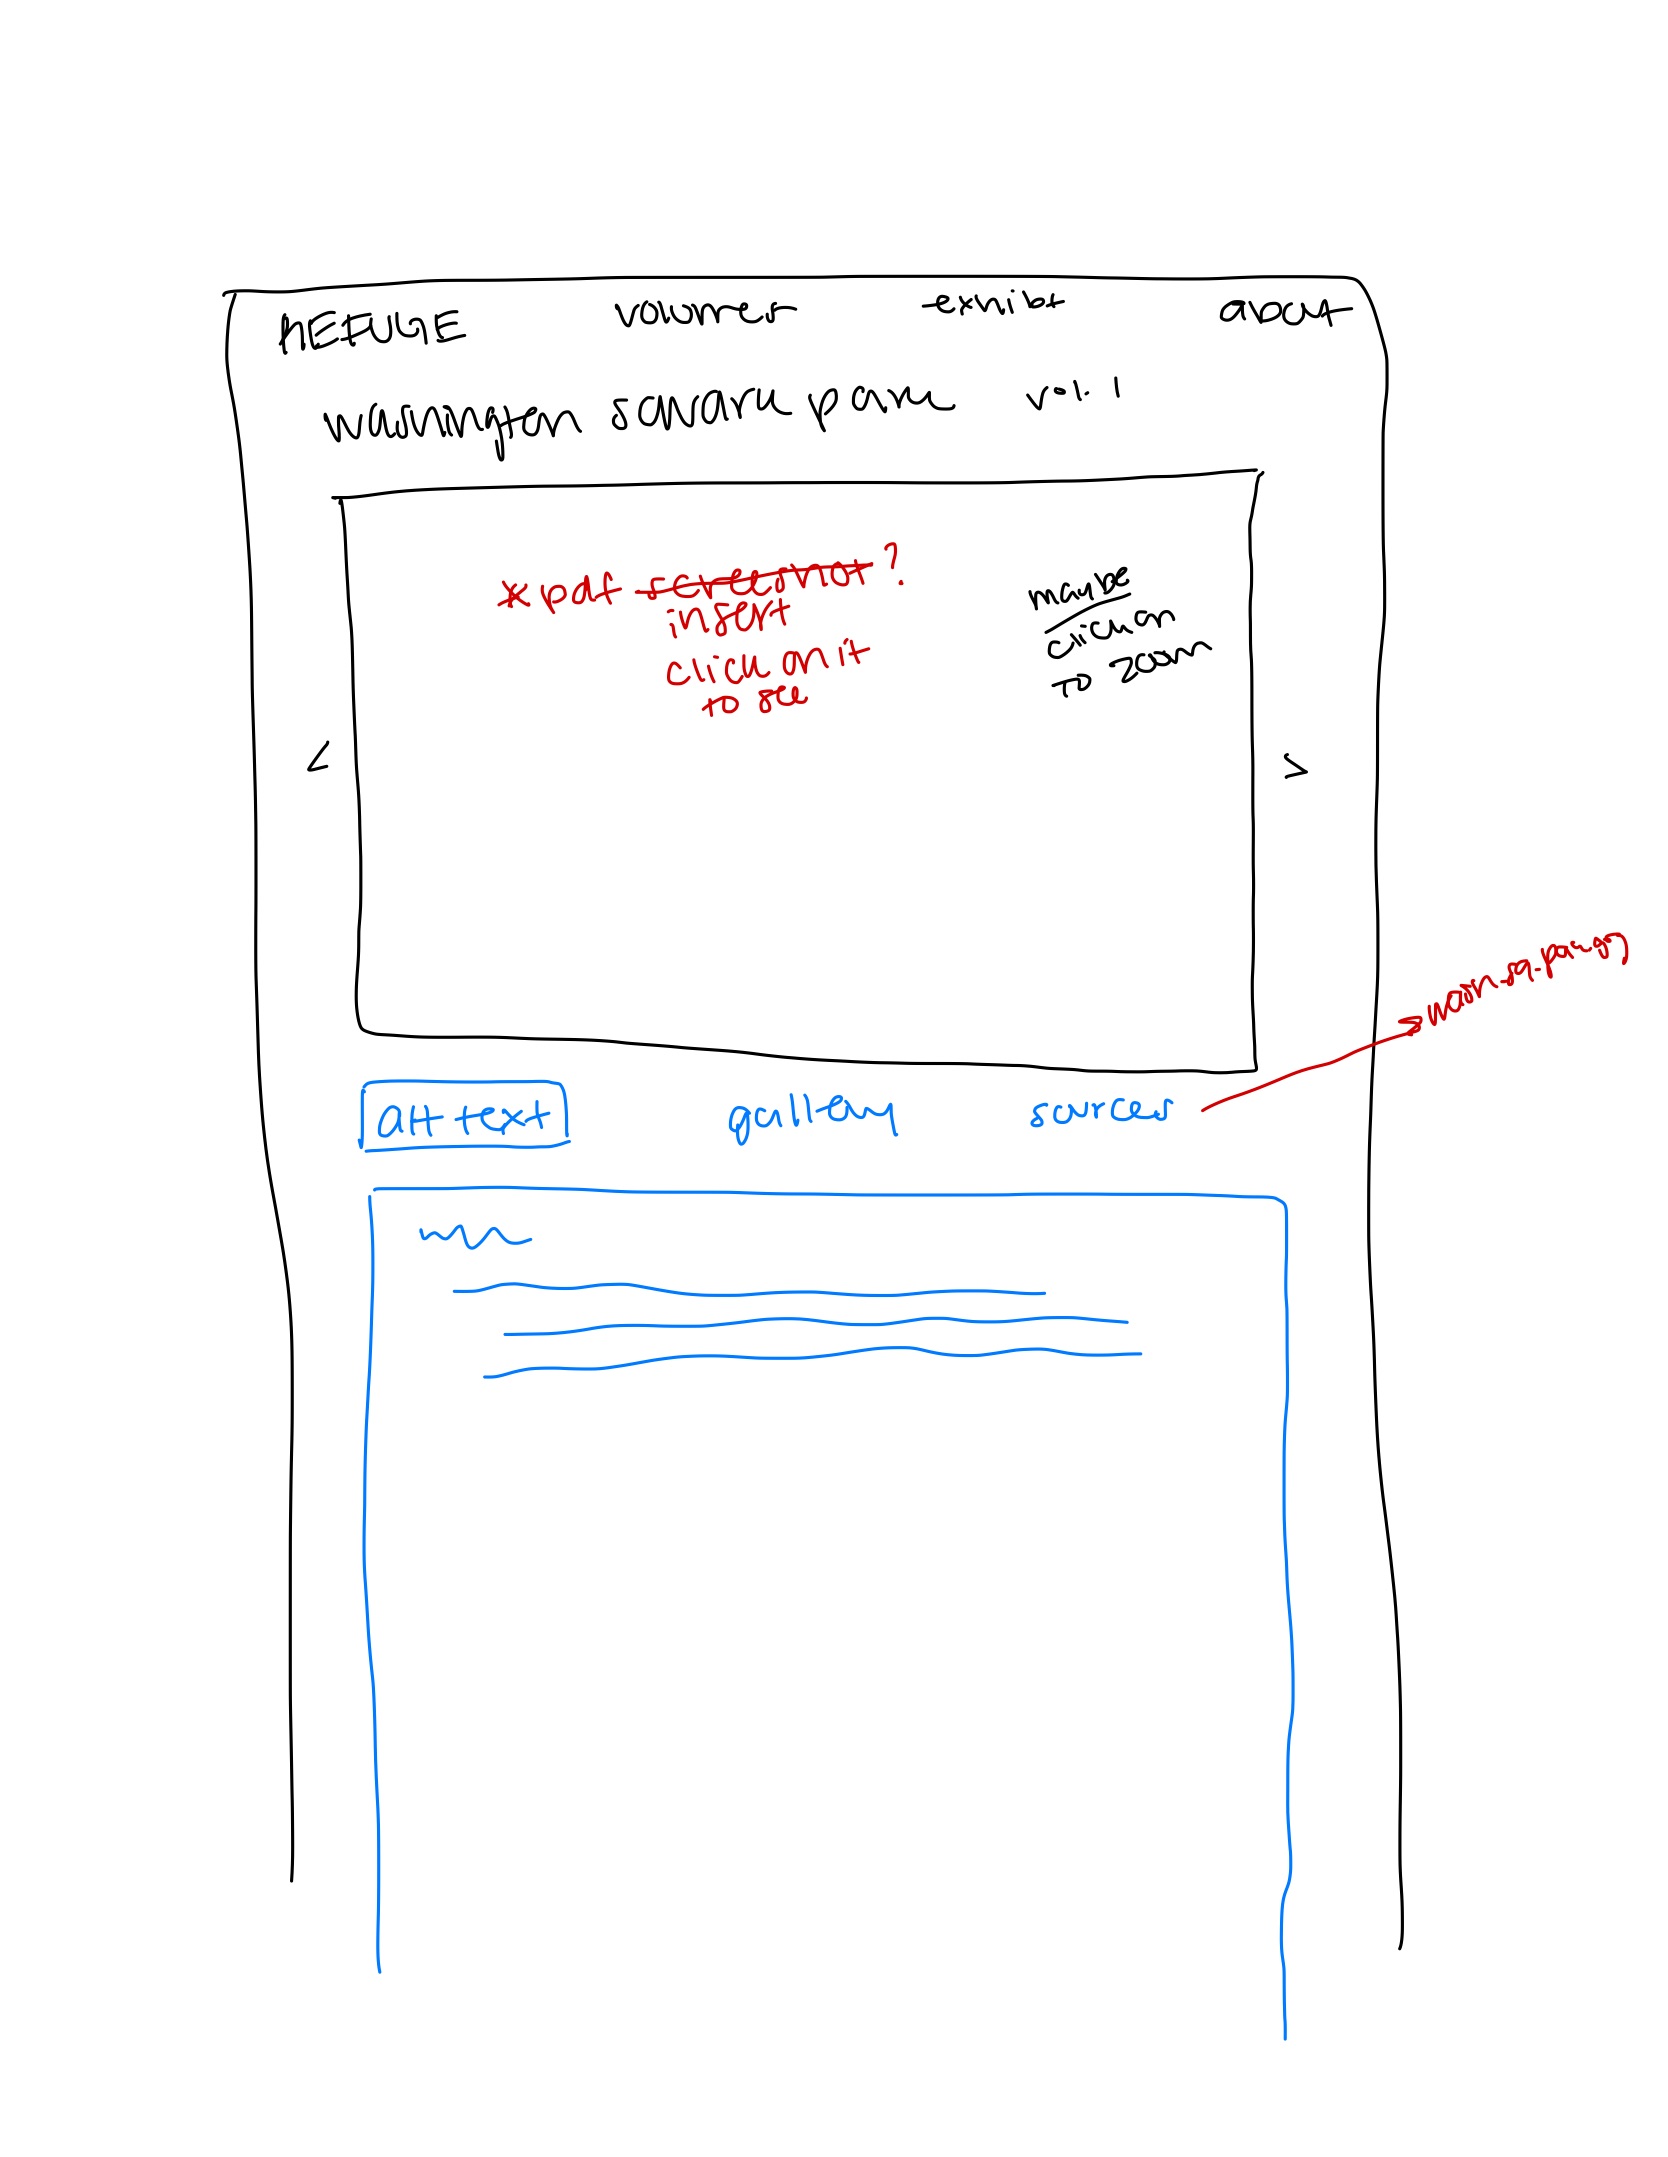 REFUGE volumes exhibit about
washington square park vol. 1
*pdf screenshot?
insert
click on it
to see
maybe
click on
to zoom
<
>
alt text gallery sources